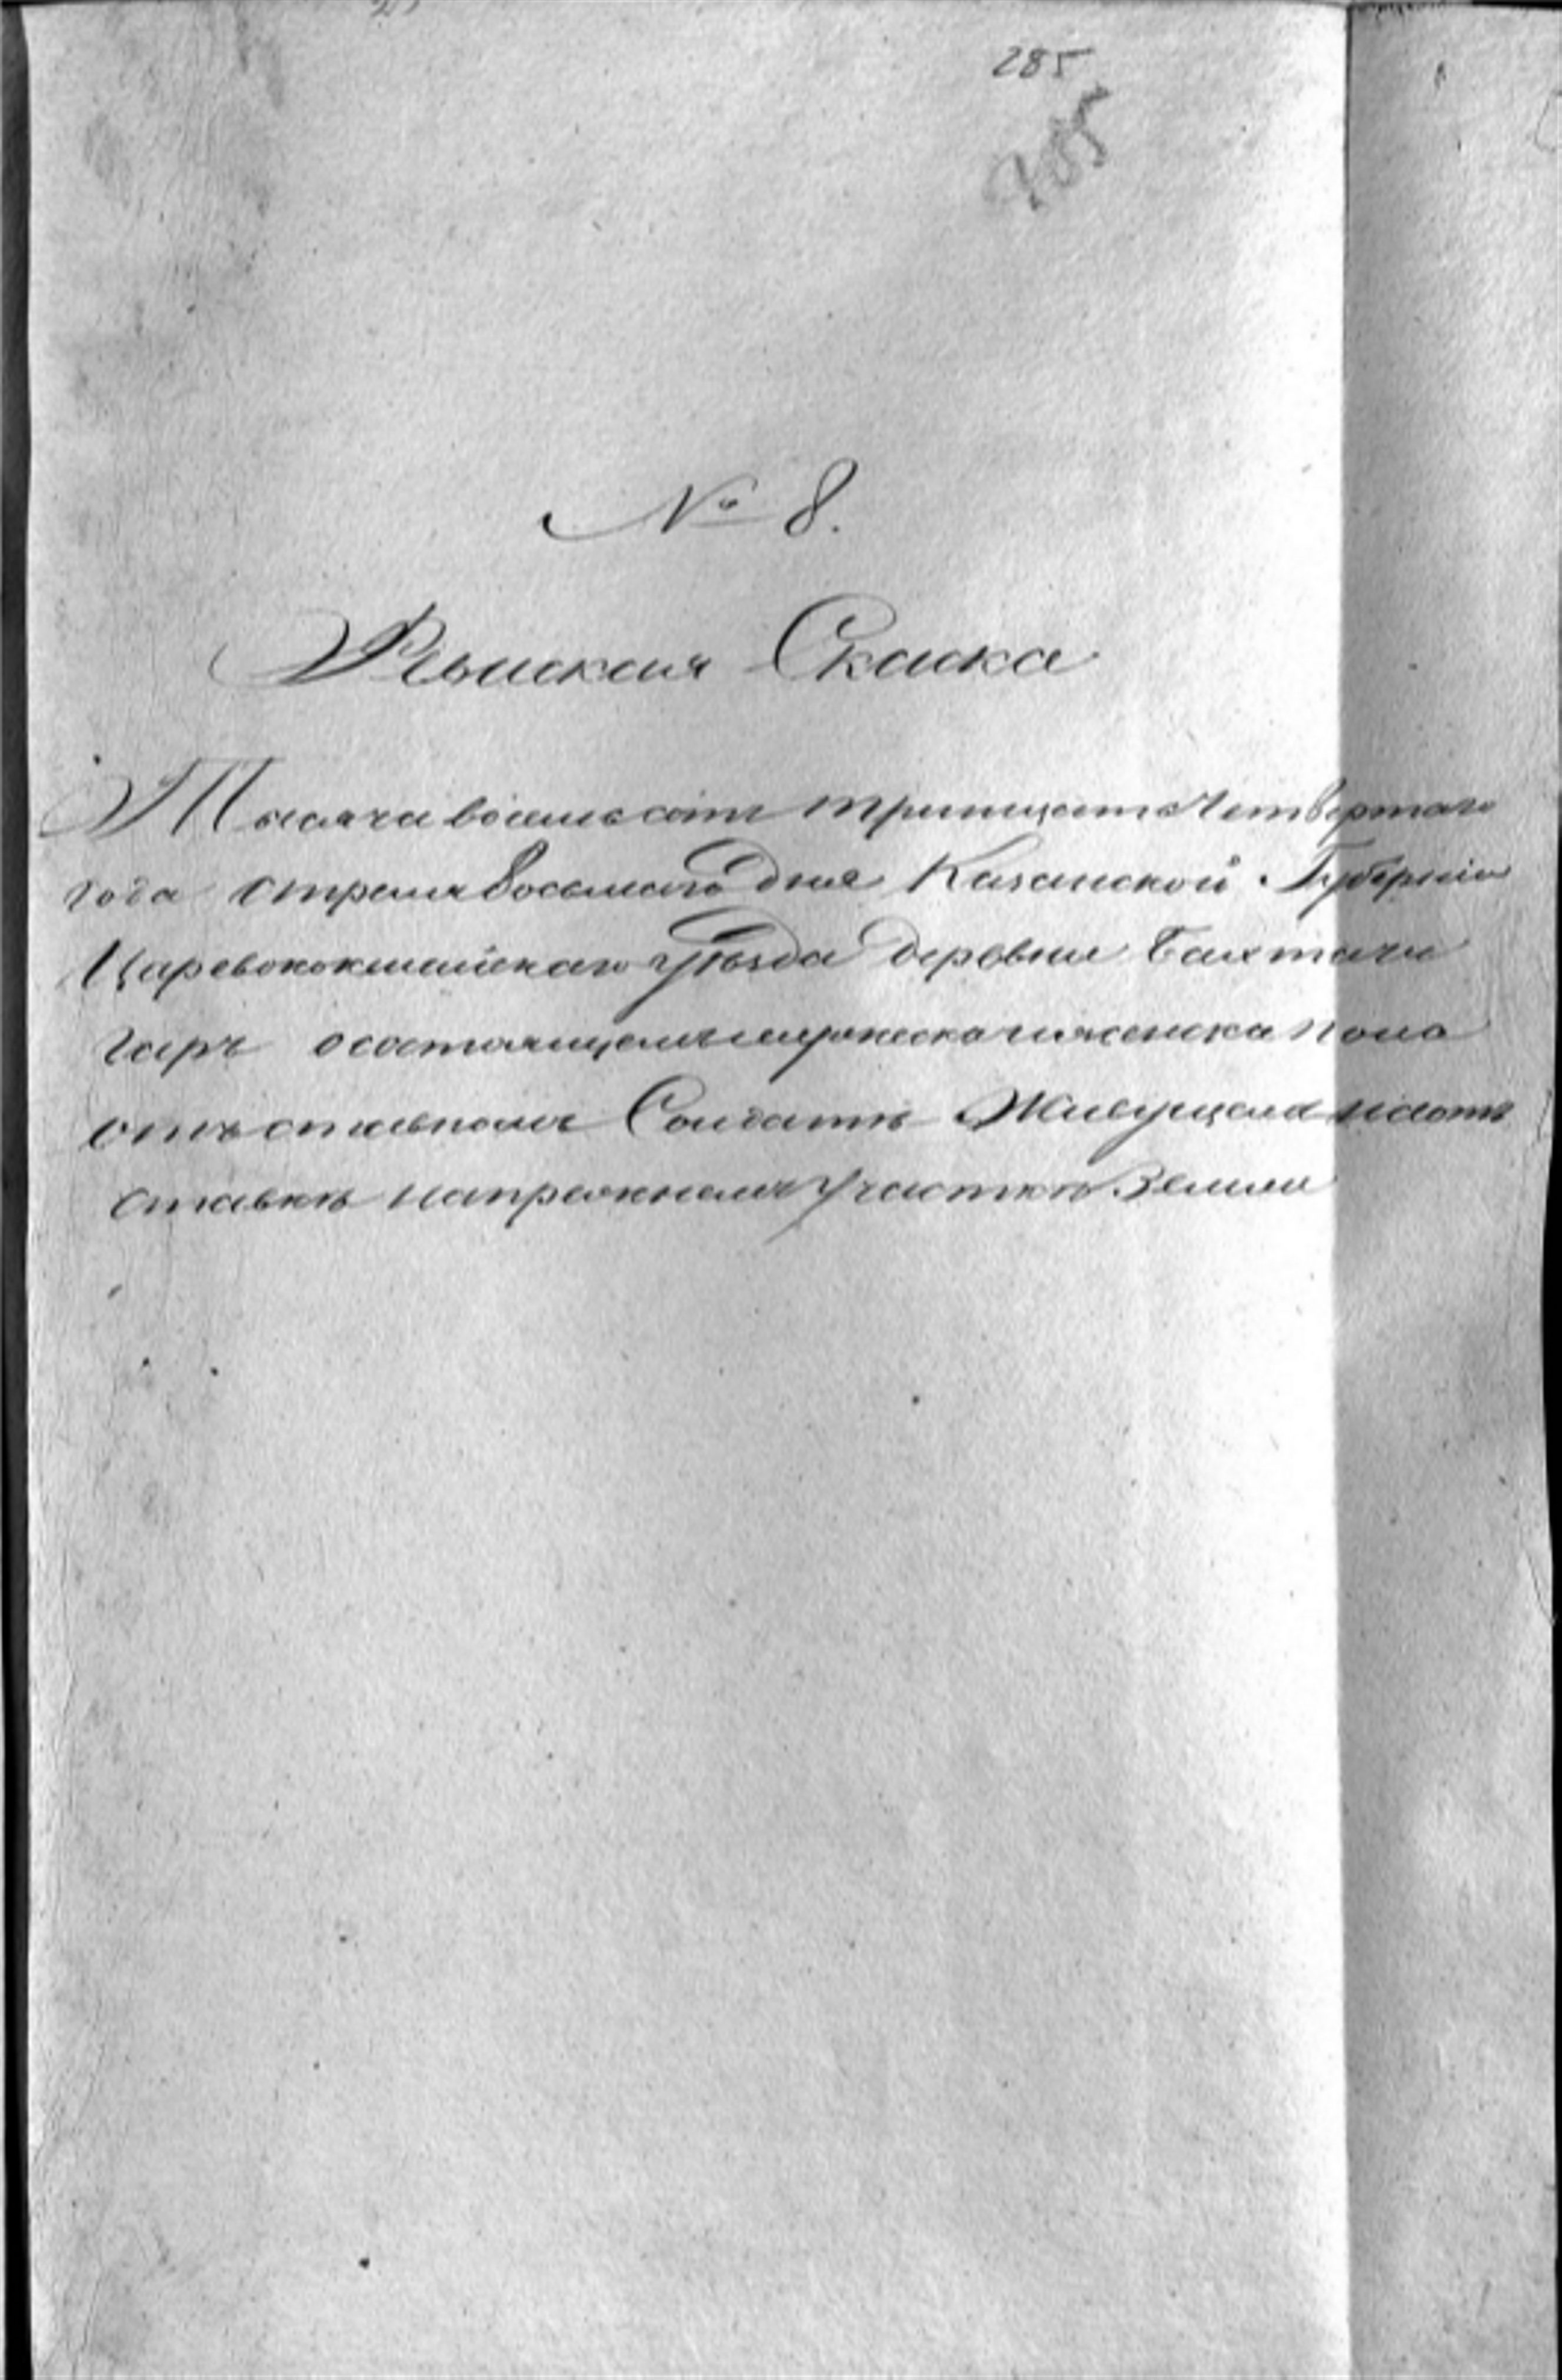 285
№ 8.
Ревиская Скаска
Тысяча восемь сотъ тритцать Четвертаго
года Апреля восьмаго дня Казанской Губерніи
Царевококшайскаго Уѣзда деревни
о состоящемъ мужеска и женска пола
отъставномъ Солдатѣ Живущемъ въ отъ
ставкѣ напрежнемъ Участкѣ Земли